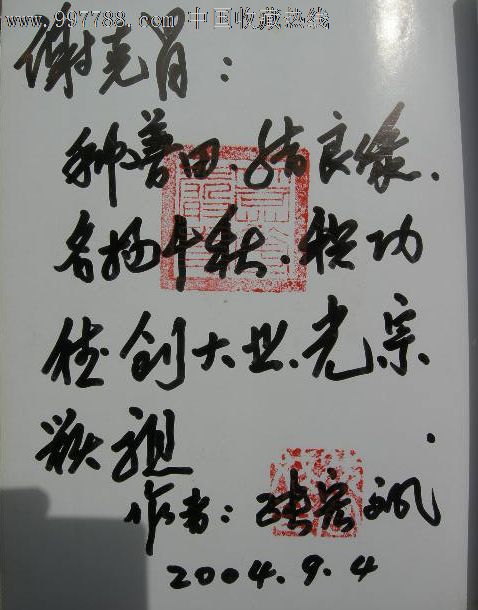 www.997788.com 中国收藏热线
谢克胃：
种善田.结良缘.
名扬千秋.积功
德创大业.光宗
耀祖.
作者：张宏
2004.9.4